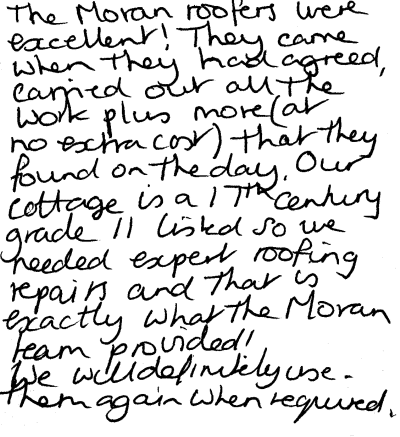 The Moran roofers were
excellent! They came
when they had agreed,
carried out all the
work plus more (at
no extra cost) that they
found on the day. Our
cottage is a 17th century
grade 11 listed so we
needed expert roofing
repairs and that is
exactly what the Moran
team provided!
We will definitely use.
them again when required.